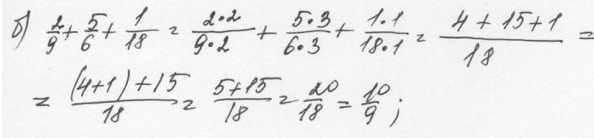 б) 2/9 + 5/6 + 1/18 = 2·2/9·2 + 5·3/6·3 + 1·1/18·1 = 4 + 15 + 1/18 =
= (4+1)+15/18 = 5+15/18 = 20/18 = 10/9 ;